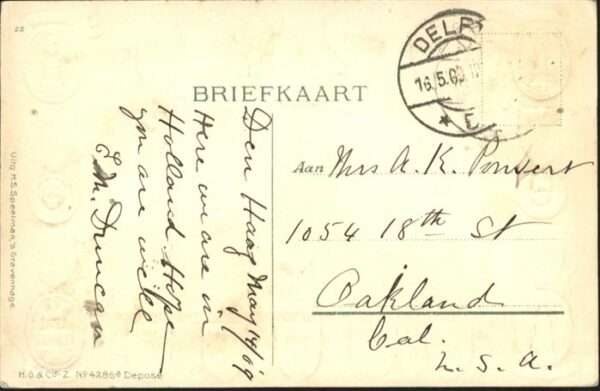 22
BRIEFKAART
DELF
16.5.0
5
Den Haag May 14/09
Here we are in
Holland Hope
you are well
E. M. Duncan
Aan Mrs A. K. Ponsert
1054 18th St
Oakland
Cal.
U. S. A.
Uitg. M.S. Speelman, 's Gravenhage
H.G & Co Z. No 4286 Deposé